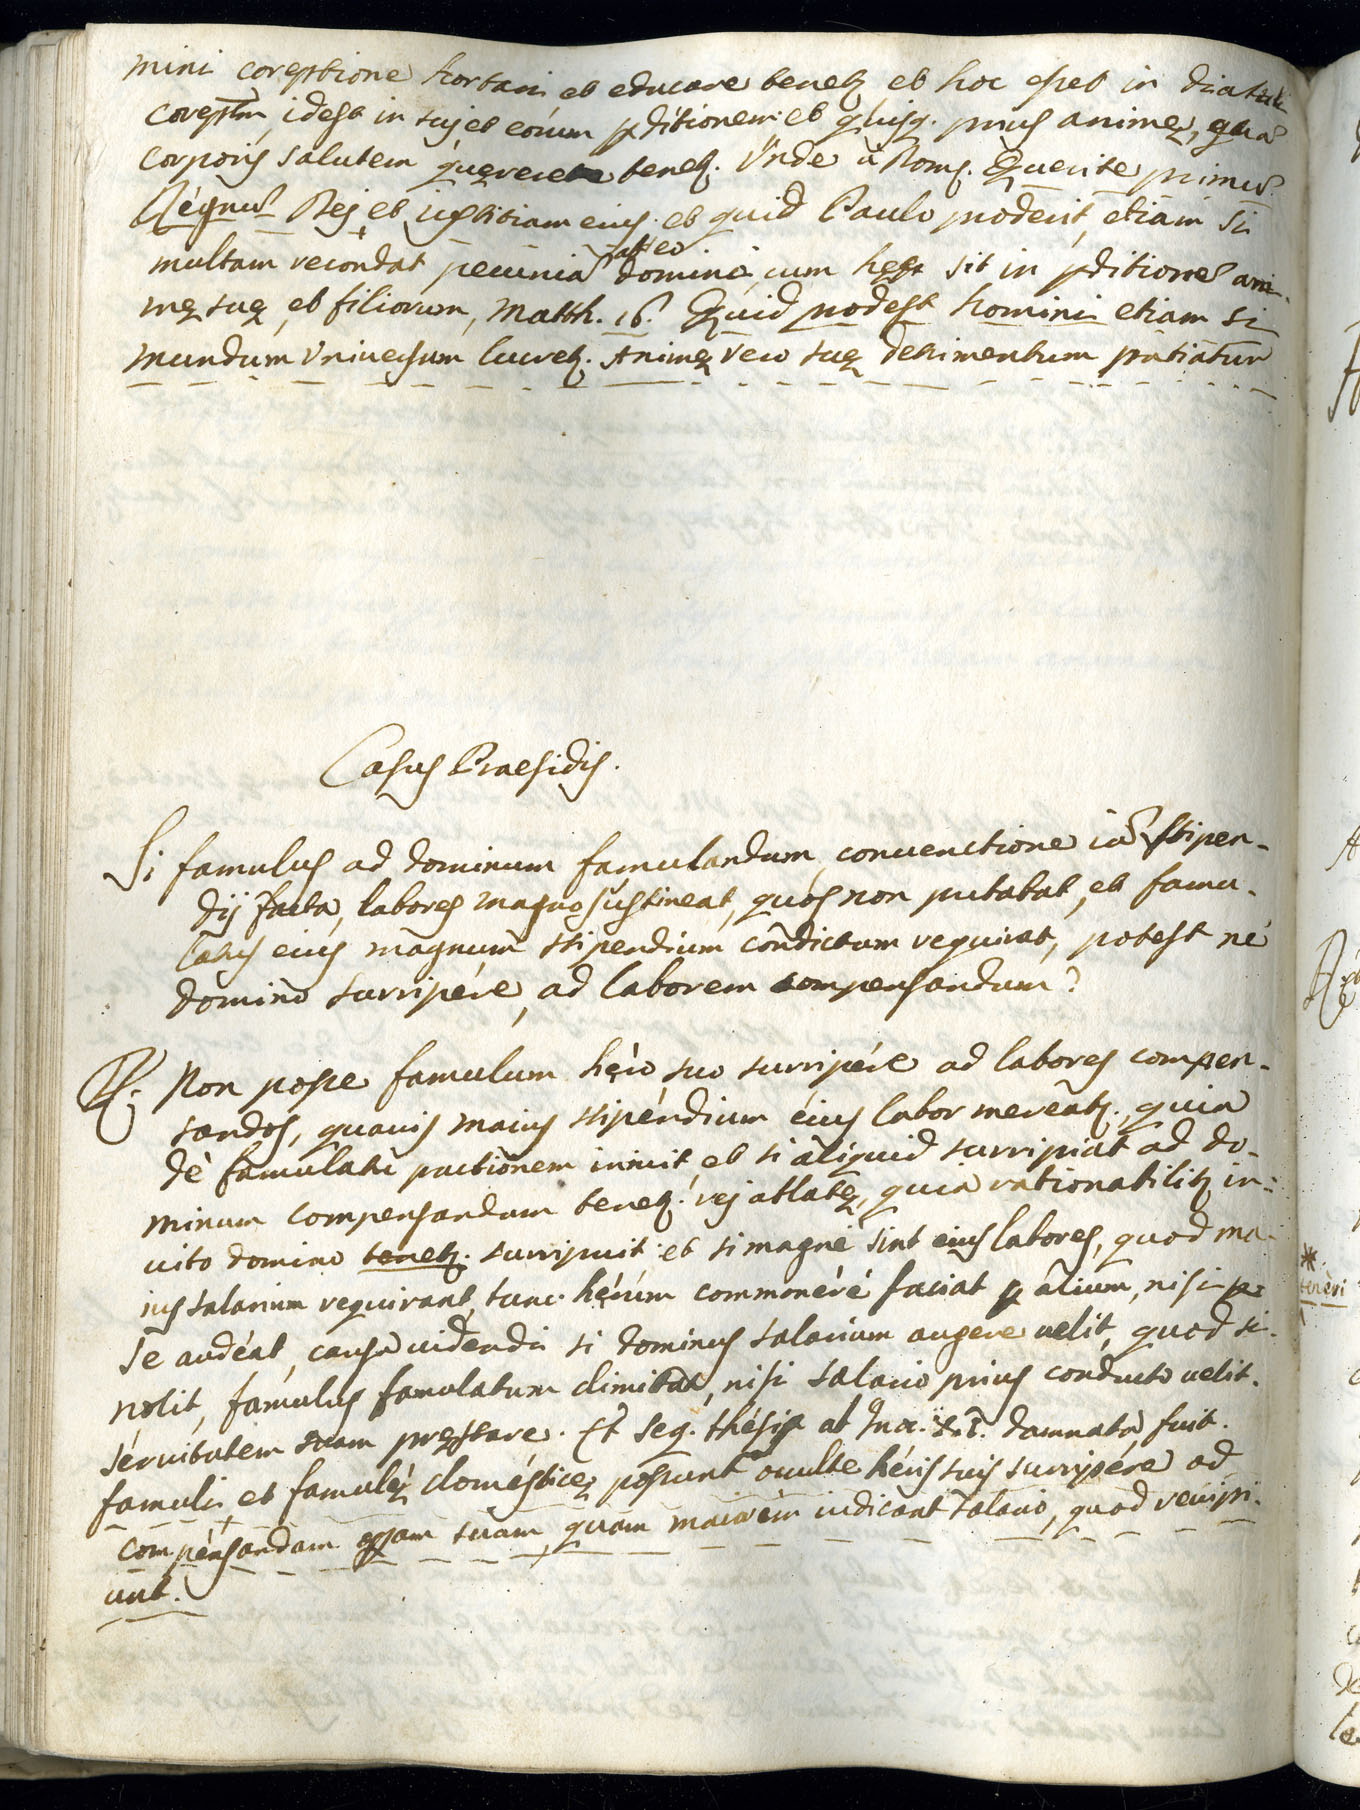 mini coreptione hortari, et educare teneꝫ et hoc esset in
corept̃m, idest in sui et eorum ꝑditionem: et quisq. prius animę, quã
corporis salutem quęrere teneꝫ. Unde Querite primũ
Regnũ Dei, et iustitiam eius. et quid Paulo proderit, etiam si
multam recondat pecuniã domino, cum hęc sit in ꝑditionẽ ani-
mę suę, et filiorum, Matth. 16. Quid prodest homini etiam si
mundum universum lucreꝫ. Animę vero suę detrimentum patiatur
Casus Praesidis.
Si famulus ad dominum famulandum, conventione iã stipen-
dij facta, labores magno sustineat, quos non putabat, et famu-
latus eius magnum stipendium condictum requirat, potest ne
domino surripere, ad laborem compensandum?
R: Non posse famulum hęro suo surripere ad labores compen-
sandos, quavis maius stipendium eius labor mereatꝫ. quia
de famulatu pactionem inivit et si aliquid surripiat ad do-
minum compensandum teneꝫ. rei ablatę, quia rationabiliꝫ in-
vito domino teneꝫ. surripuit. et si magni sint eius labores, quod ma-
ius salarium requirant, tunc hęrum commonere faciat ꝑ alium, nisi ꝑ
se audeat, causa videndi si dominus salarium augere velit, quod si
nolit, famulus famulatum dimitat, nisi salario prius conducto velit
servitutem suam pręstare. Et seq. thesis ab Inn. XI. damnata fuit.
famuli et famulę domesticę possunt occulte heris suis surripere ad
compensandam operam suam, quam maiorem iudicant salario, quod recipi-
unt.
* teneri